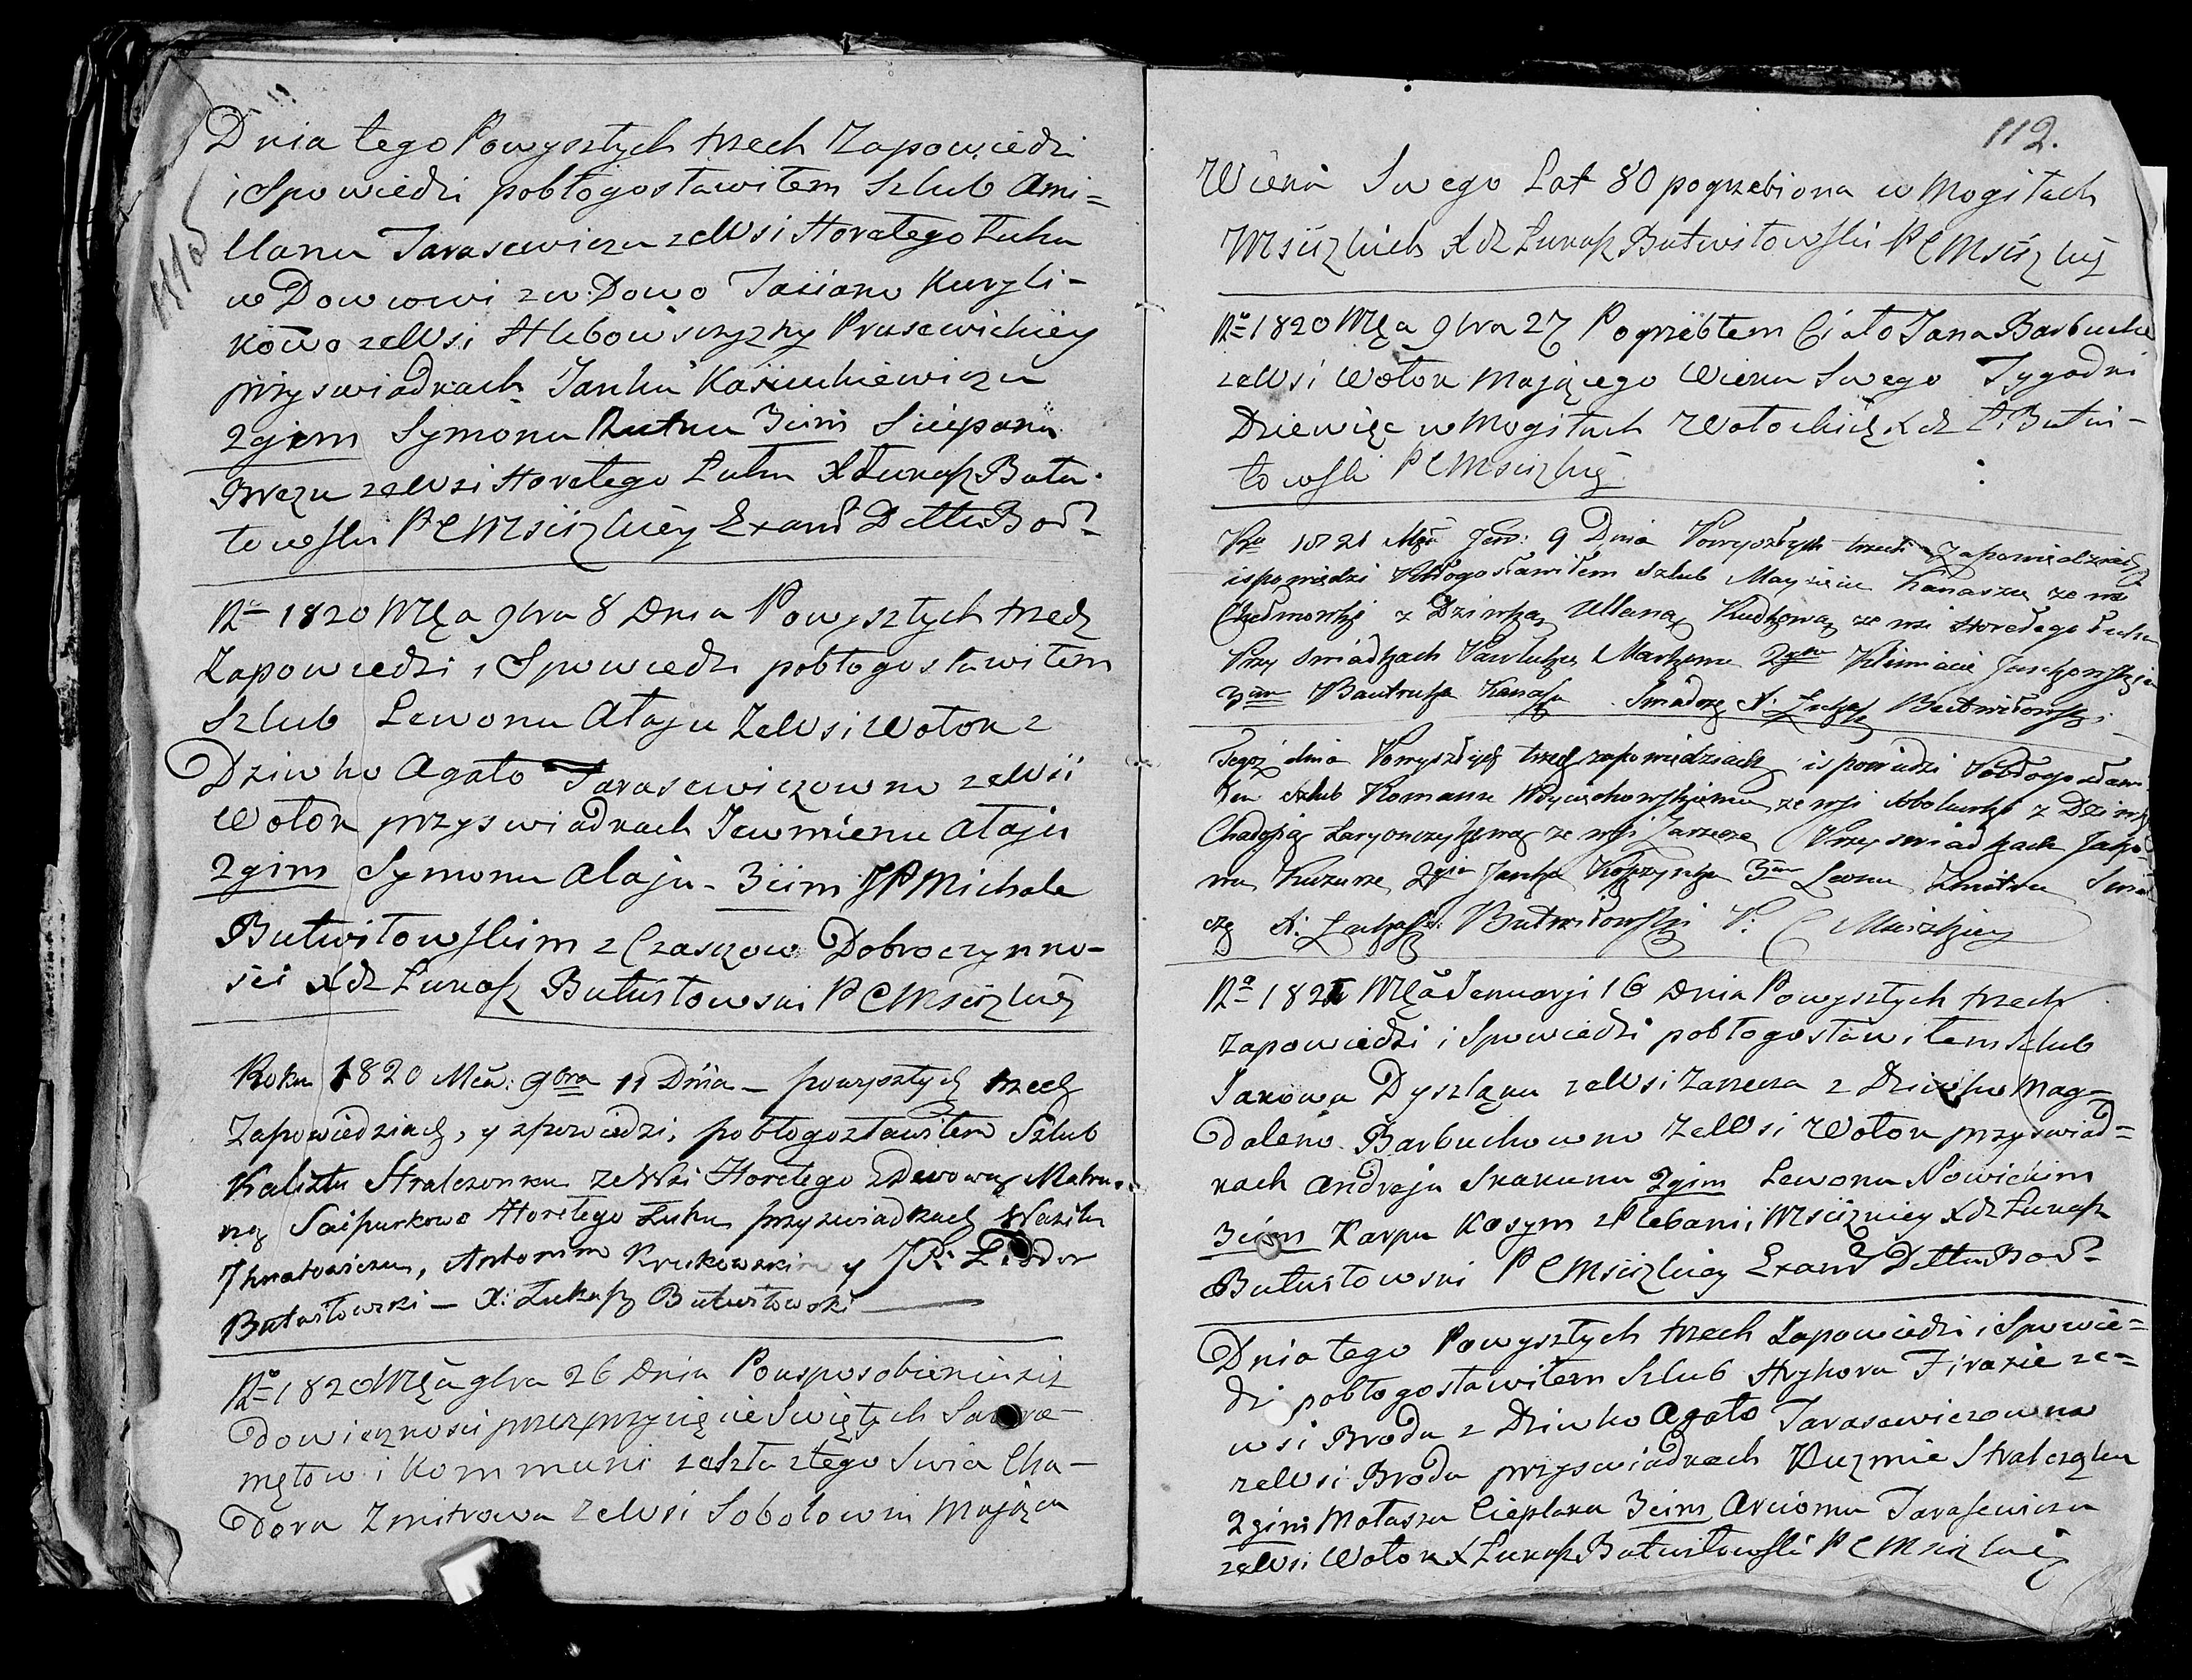 Dnia tego Powyszłych trzech Zapowiedzi
i Spowiedzi pobłogosławiłem Szlub Ami=
llanu Tarasewiczu zeWsi Horełego Łuhu
wDowcowi zw:Dowo Taciano Kuryli-
kowo zeWsi Hlebowszczyzny Prusewickiey
przyswiadkach Janku Kasiuckiewiczu
2gim Symonu Rutku 3cim Sciepanu
Brezu zeWsi Horełego Łuhu X Łukasz Butwi-
łowski P C Msciżkiey Exami Dettu Bod
R° 1820 Mca 9bra 8 Dnia Powyszłych trzech
Zapowiedzi i Spowiedzi pobłogosławiłem
Szlub Lewonu Ałaju ZeWsi Wołok z
Dziwko Agato Tarasewiczowno zeWsi
Wołok przyswiadkach Jewmienu Ałaju
2gim Symonu Alaju - 3cim JP Michale
Butwiłowskim z Czaszow Dobroczynno-
sci Xdz Łukasz Butwiłowski P C Msciżkiey
Roku 1820 Mca: 9bra 11 Dnia - powyszłych trzech
Zapowiedziach, y spowiedzi, pobłogosławiłem Szlub
Kalixtu Stralczonku ZeWsi Horełego zDowową Matru-
ną Saipurkowo Horełego Łuhu przyswiadkach Wasilu
Ihnatowiczu, Antonim Krukowskim y JP: Fiodor
Butwiłowski - X: Łukasz Butwiłowski
R° 1820 Mca 9bra 26 Dnia Pousposobieniusię
Dowiecznosci przezprzyięcieSwiętych Sakra-
mętow i Kommuni zeszła ztego Swia Cha-
Dora Zmitrowa zeWsi Sobołowki Mająca
112.
Wieku Swego Lat 80 pogrzebiona w Mogiłach
Msciżkich Xdz Łukasz Butwiłowski P C Msciżkiey
R° 1820 Mca 9bra 27 Pogrzebłem Ciało Jana Barbucha
zeWsi Wołok Mającego Wieku Swego Tygodni
Dziewięc w Mogiłach Wołockich Xdz Ł Butwi-
łowski P C Msciżkiey
Rku 1821 Mca Jan: 9 Dnia Powyszłych trzech Zapowiedziach
ispowiedzi Pobłogosławiłem Szlub Maysieiu Kanaszu ze wsi
z Dziwką Ullaną Kudkową ze wsi Horełego Łuhu
Przy swiadkach Pawluku Markamu 2gim Klimiacie
3cim Bautruku Kanasz Swiadczę X: Łukasz Butwiłowski
Tegoż dnia Powyszłych trzech zapowiedziach ispowiedzi Pobłogosławi
łem szlub Romanu Woyciechowskiemu ze wsi z Dziwką
Chadosią Łaryonczykową ze wsi Zarzecza Przy swiadkach Jako-
wu Kuzurze 2gim Janka 3cim Leonu Zmitru Swiad
czę X: Łukasz Butwiłowski P: C Msciżkiey
R° 1821 Mca Januarji 16 Dnia Powyszłych trzech
Zapowiedzi i Spowiedzi pobłogosławiłem Szlub
Jakowu Dyszlęku zeWsi Zarzecza z Dziwko Mag-
Daleno Barbuchowno ZeWsi Wołok przyswiad=
kach Andreju Skakunu 2gim Lewonu Nowickim
3cim Karpu Kosym zPlebanii Msciżkiey Xdz Łukasz
Butwiłowski P C Msciżkiey Exami Dettu Bod
Dnia tego Powyszłych trzech Zapowiedzi i Spowie=
dzi pobłogosławiłem Szlub Hryhoru Firazie ze=
wsi Broda z Dziwko Agato Tarasewiczowna
zeWsi Broda przyswiadkach Kuzmie Stralczęku
2gim Matasza Cieplaka 3cim Arciomu Tarasewiczu
zeWsi Wołok X Łukasz Butwiłowski P C Msciżkiey